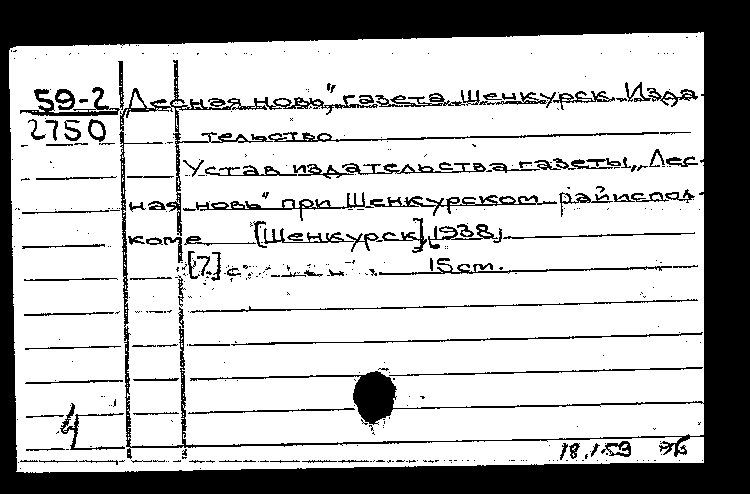 59-2
2750
Лесная новь", газета. Шенкурск. Изда-
тельство.
Устав издательства газеты „Лес-
ная новь" при Шенкурском райиспол-
коме. [Шенкурск], 1938,
[7] с. 15 cm.
4
18.1.59